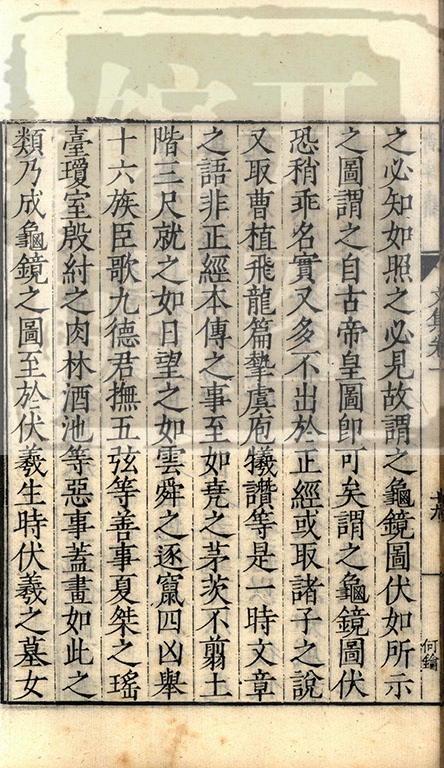 之必知如照之必見故謂之龜鏡圖伏如所示
之圖謂之自古帝皇圖即可矣謂之龜鏡圖伏
恐稍乖名實又多不出於正經或取諸子之說
又取曹植飛龍篇摯虞庖犧讚等是一時文章
之語非正經本傳之事至如堯之茅茨不翦土
階三尺就之如日望之如雲舜之逐竄四凶舉
十六族臣歌九德君撫五弦等善事夏桀之瑤
臺瓊室殷紂之肉林酒池等惡事蓋畫如此之
類乃成龜鏡之圖至於伏羲生時伏羲之墓女